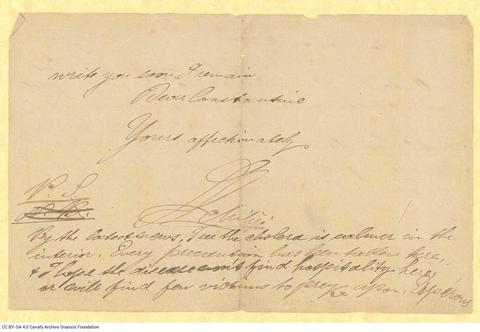 write you soon I remain
Dear Constantine
Yours affectionately
P. S.
N. B.
By the latest news, I see the cholera is calmer in the
interior. Every precaution has been taken here,
& I hope the disease wont find hospitality here,
or will find few victims to prey upon.
CC BY-SA 4.0 Cavafy Archive Onassis Foundation